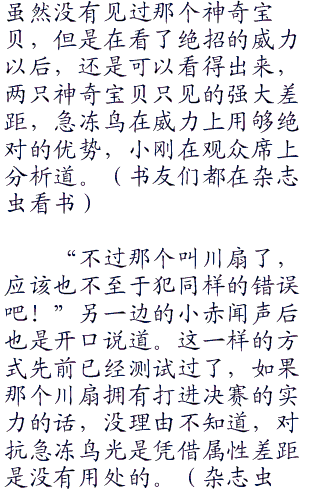 虽然没有见过那个神奇宝
贝，但是在看了绝招的威力
以后，还是可以看得出来，
两只神奇宝贝只见的强大差
距，急冻鸟在威力上用够绝
对的优势，小刚在观众席上
分析道。（书友们都在杂志
虫看书）
“不过那个叫川扇了，
应该也不至于犯同样的错误
吧！”另一边的小赤闻声后
也是开口说道。这一样的方
式先前已经测试过了，如果
那个川扇拥有打进决赛的实
力的话，没理由不知道，对
抗急冻鸟光是凭借属性差距
是没有用处的。（杂志虫